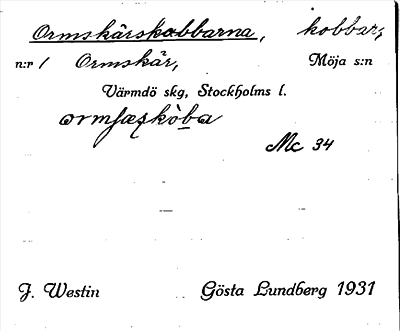 Ormskärskobbarna, kobbar,
n:r / Ormskär, Möja s:n
Värmdö skg, Stockholms l.
Mc 34
J. Westin Gösta Lundberg 1931